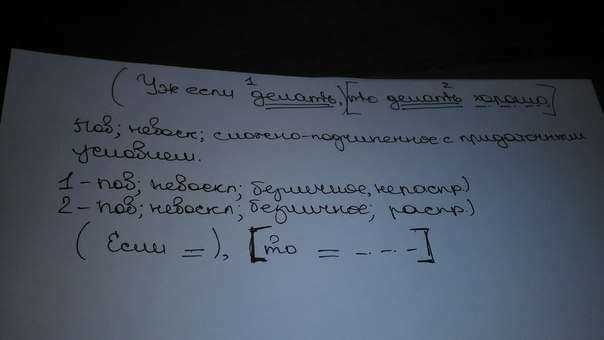 1 2
(Уже если делать,) [то делать хорошо]
Пов; невоск; сложно-подчиненное с придаточным
условием.
1 - пов; невоскл; безличное, нераспр.)
2 - пов; невоскл; безличное; распр.)
(Если =), [то = -.-.-]